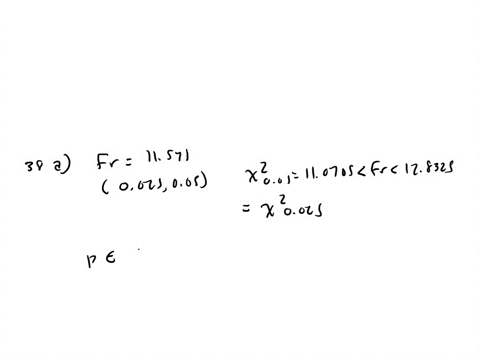 38 a) Fr = 11.571
(0.025, 0.05) χ²0.05 = 11.0705 < Fr < 12.8325
= χ²0.025
p ∈